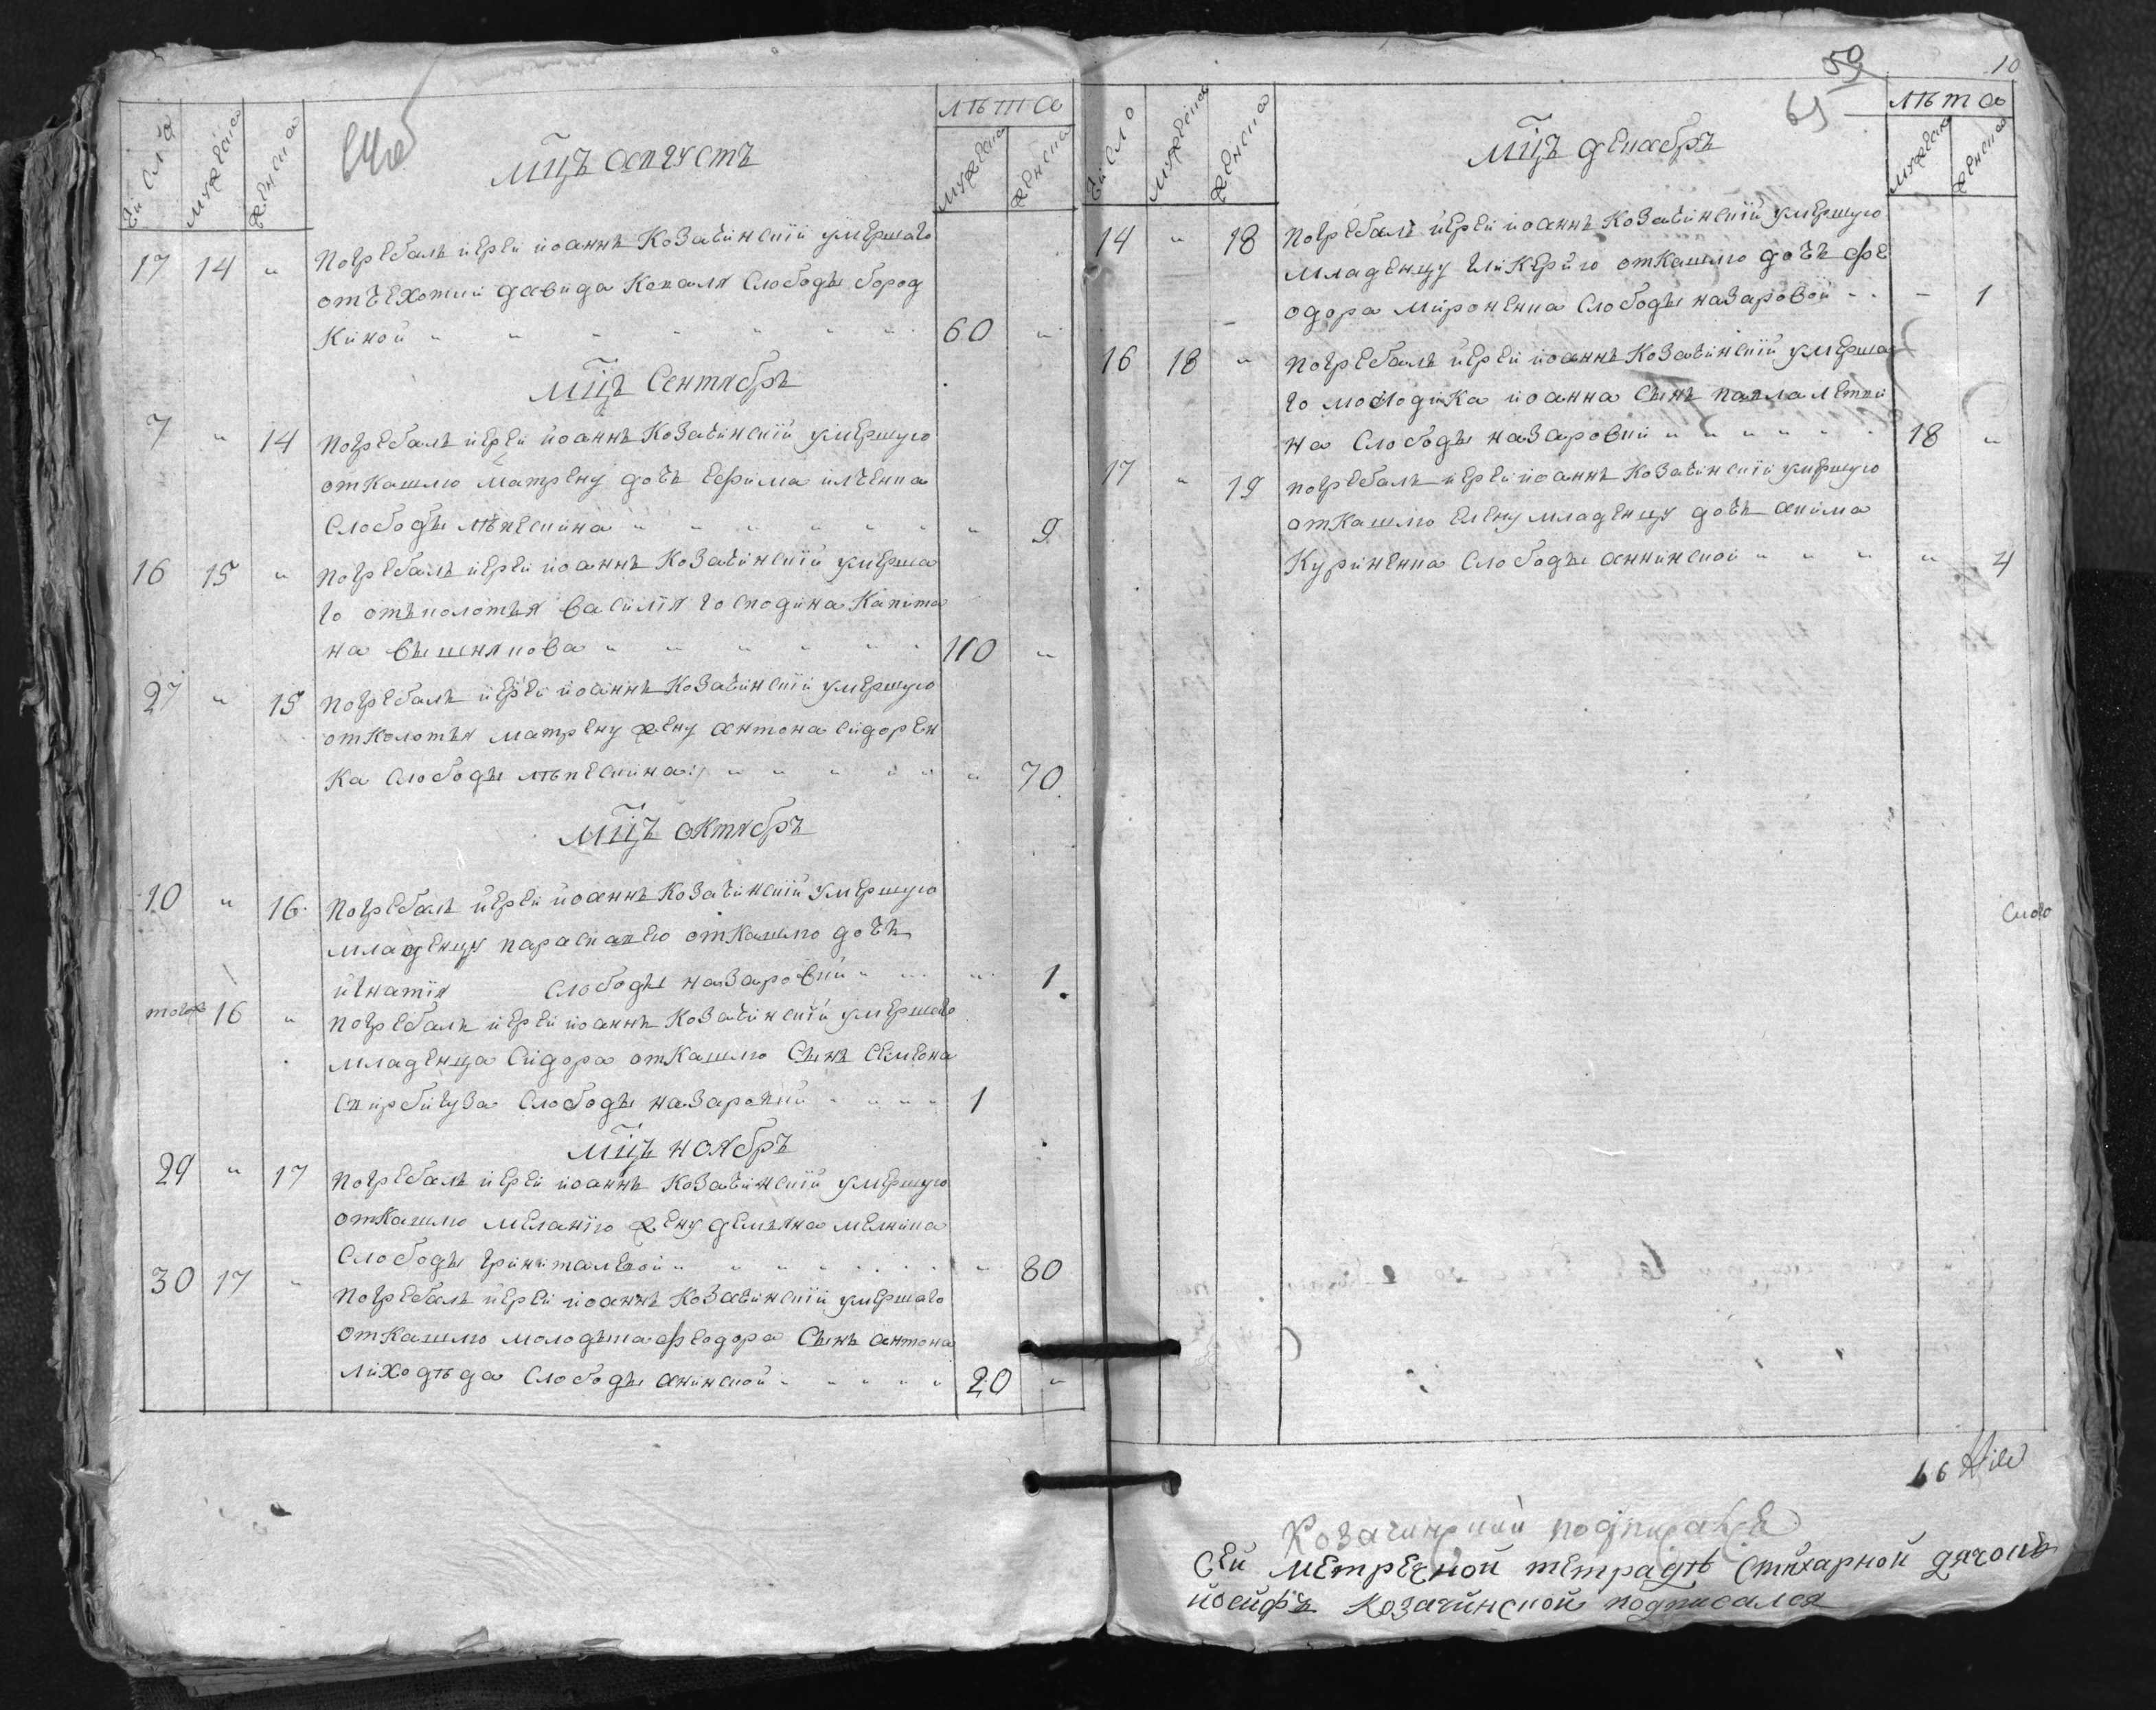 лѣта
Число
мужеска
женска
мцъ августъ
мужеска
женска
17 14 " погребалъ иерей иоаннъ Козачинскїй умершаго
отъ чехотки давида Коваля Слободы бород
Киной " " " 60 "
мцъ Сентябръ
7 " 14 погребалъ иерей иоаннъ Козачинскїй умершую
откашлю матрену дочъ ефима илченка
Слободы лѣпескина " " " 9
16 15 " погребалъ иерей иоаннъ Козачинскїй умерша
го отъколотья василїя господина Капита
на вышнякова " " " 110 "
27 " 15 погребалъ иерей иоаннъ Козачинскїй умершую
отколотья матрену жену антона сидорен
Ка Слободы лѣпескина " " " 70
мцъ октябръ
10 " 16 погребалъ иерей иоаннъ Козачинскїй умершую
младенцу параскавею откашлю дочъ
игнатїя Слободы назаровки " " " 1
тогож 16 " погребалъ иерей иоаннъ Козачинскїй умершаго
младенца Сидора откашлю Сынъ Семена
Слободы назаровки " " " 1
мцъ ноябръ
29 " 17 погребалъ иерей иоаннъ Козачинскїй умершую
откашлю меланїю жену демьяна мелника
Слободы " " " 80
30 17 " погребалъ иерей иоаннъ Козачинскїй умершаго
откашлю молодыка феодора Сынъ антона
лиходѣда Слободы анинской " " " 20 "
50
10
69
лѣта
Число
мужеска
женска
мцъ декабръ
мужеска
женска
14 " 18 погребалъ иерей иоаннъ Козачинскїй умершую
младенцу гликерїю откашлю дочъ фе
одора мироненка Слободы назаровой - - - 1
16 18 " погребалъ иерей иоаннъ Козачинскїй умерша
го молодика иоанна Сынъ павла
на Слободы назаровки " " " 18 "
17 " 19 погребалъ иерей иоаннъ Козачинскїй умершую
откашлю елену младенцу дочъ акима
Куриненка Слободы аннинской " " " 4
Козачинский подписався
Сей метречной тетрадѣ Стихарной дячокъ
йосифъ Козачинской подписался